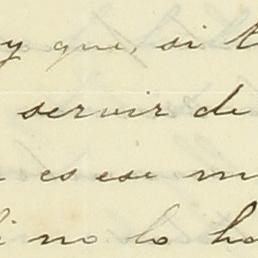 y que, si t
servir de
es ese m
i no lo ha